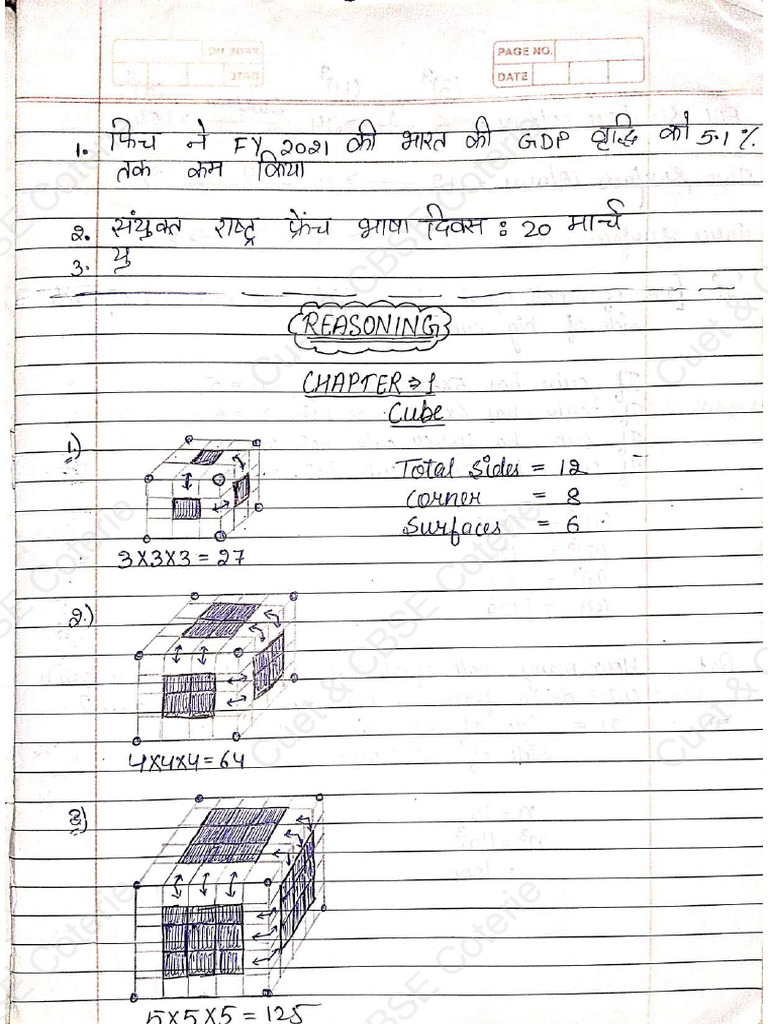 PAGE NO.
DATE
1. फिच ने FY 2021 की भारत की GDP वृद्धि को 5.1 %
तक कम किया
2. संयुक्त राष्ट्र फ्रेंच भाषा दिवस : 20 मार्च
3. यु
REASONING
CHAPTER ⇒ 1
Cube
1)
Total Sides = 12
Corner = 8
Surfaces = 6
3×3×3 = 27
2.)
4×4×4 = 64
3)
5×5×5 = 125
Cuet & CBSE Coterie